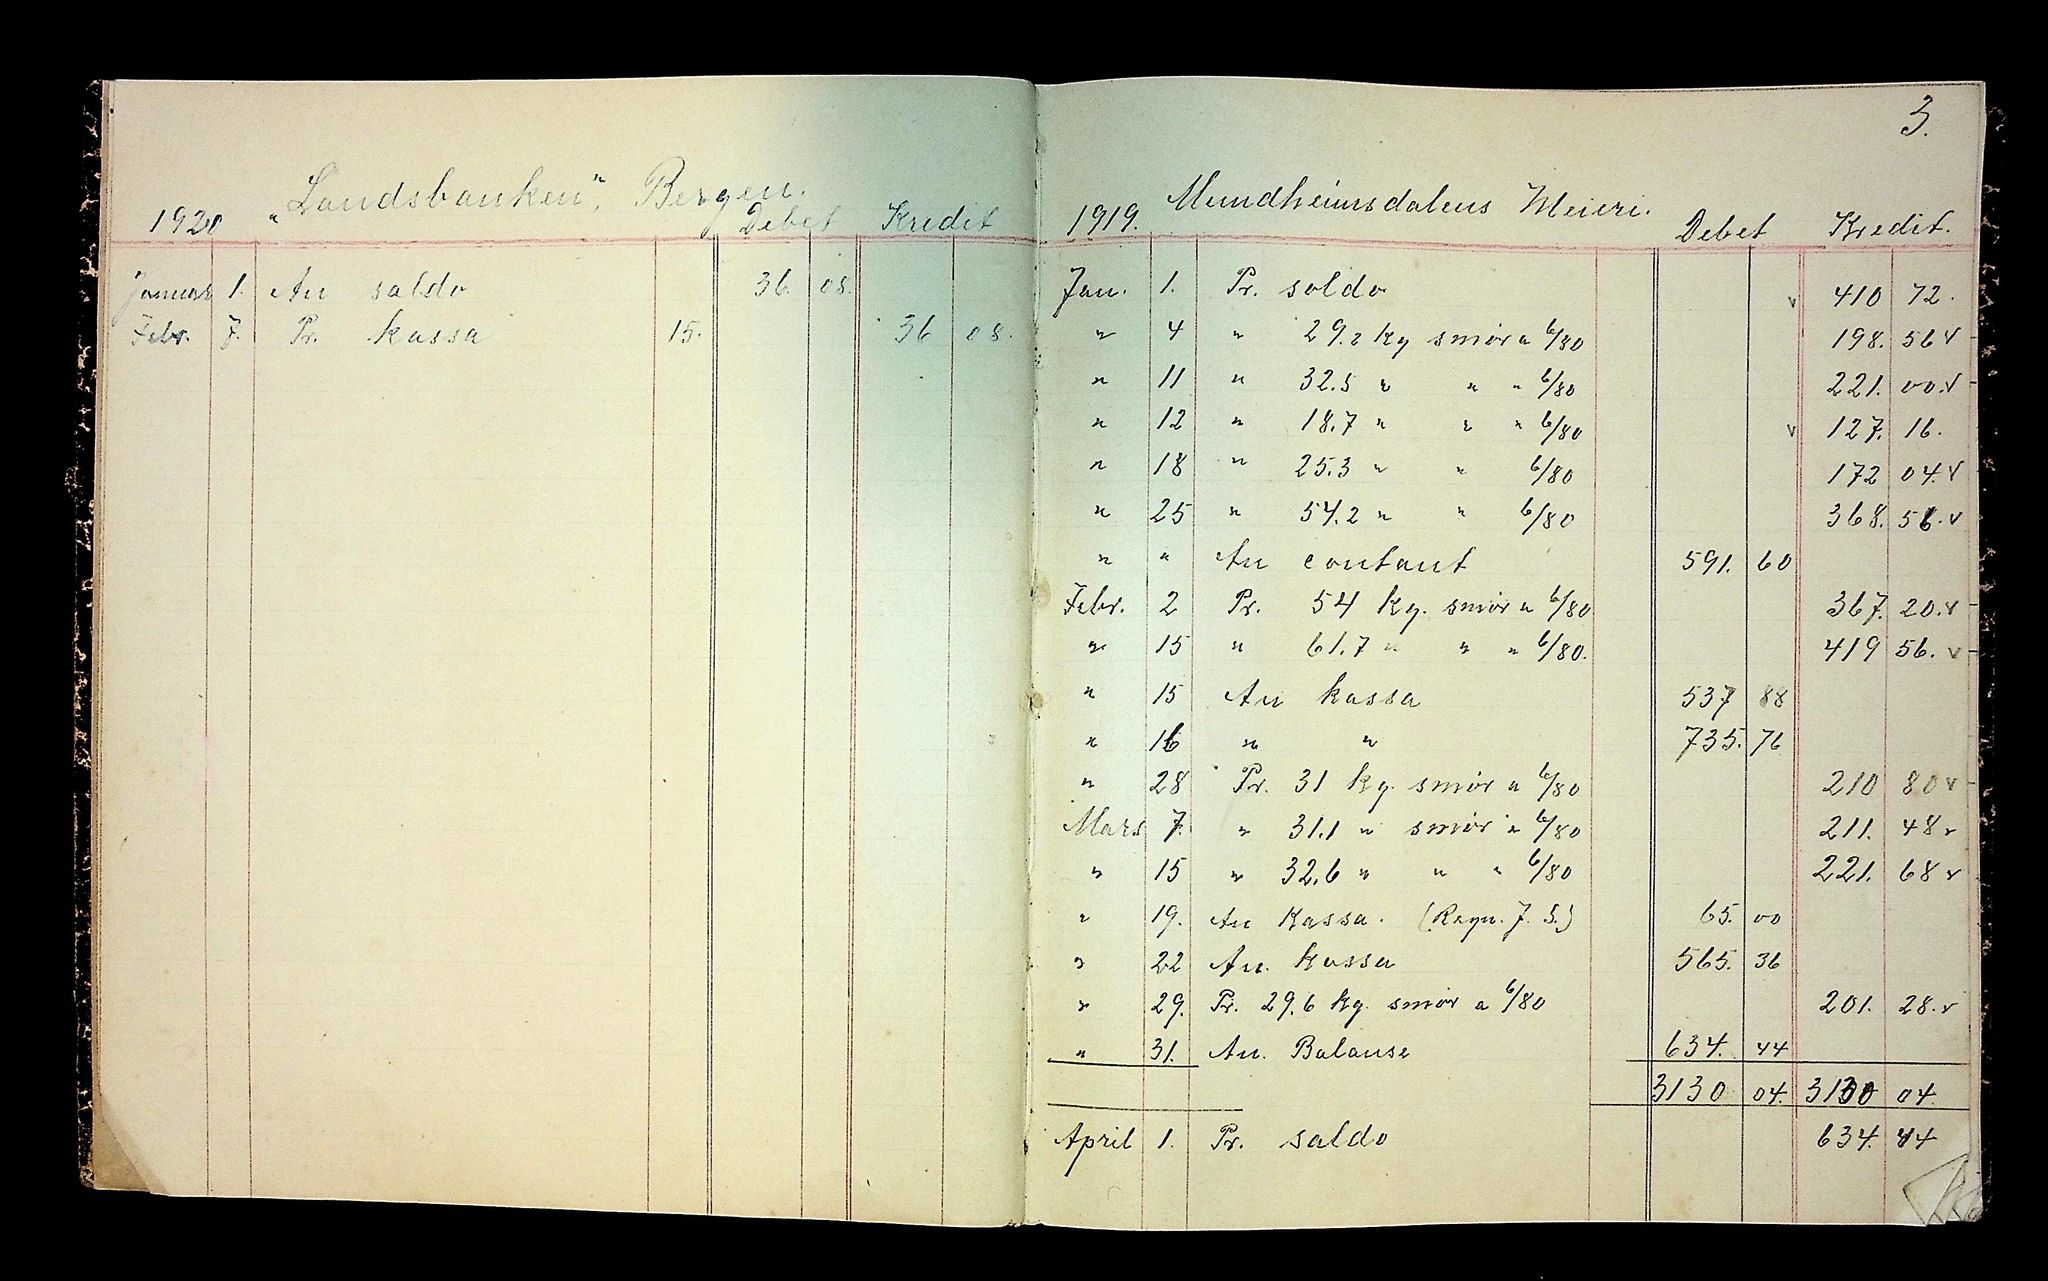 1920 "Landsbanken", Bergen. Debet Kredit
Januar 1. An saldo 36. 08.
Febr. 7. Pr. kassa 15. 36 08.
3.
1919. Mundheimsdalens Meieri. Debet Kredit.
Jan. 1. Pr. saldo v 410 72.
" 4 " 29.2 kg smør a 6/80 198. 56 v
" 11 " 32.5 " " " 6/80 221. 00. v
" 12 " 18.7 " " " 6/80 v 127. 16.
" 18 " 25.3 " " 6/80 172 04. v
" 25 " 54.2 " " 6/80 368. 56. v
" " An contant 591. 60
Febr. 2 Pr. 54 kg. smør a 6/80 367. 20. v
" 15 " 61.7 " " " 6/80. 419 56. v
" 15 An kassa 537 88
" 16 " " 735. 76
" 28 Pr. 31 kg. smør a 6/80 210 80 v
Mars 7. " 31.1 " smør " 6/80 211. 48 v
" 15 " 32.6 " " " 6/80 221. 68 v
" 19. An Kassa. (Regn. J. S.) 65. 00
" 22 An. kassa 565. 36
" 29. Pr. 29.6 kg. smør a 6/80 201. 28. v
" 31. An. Balanse 634. 44
3130 04. 3130 04.
April 1. Pr. saldo 634. 44